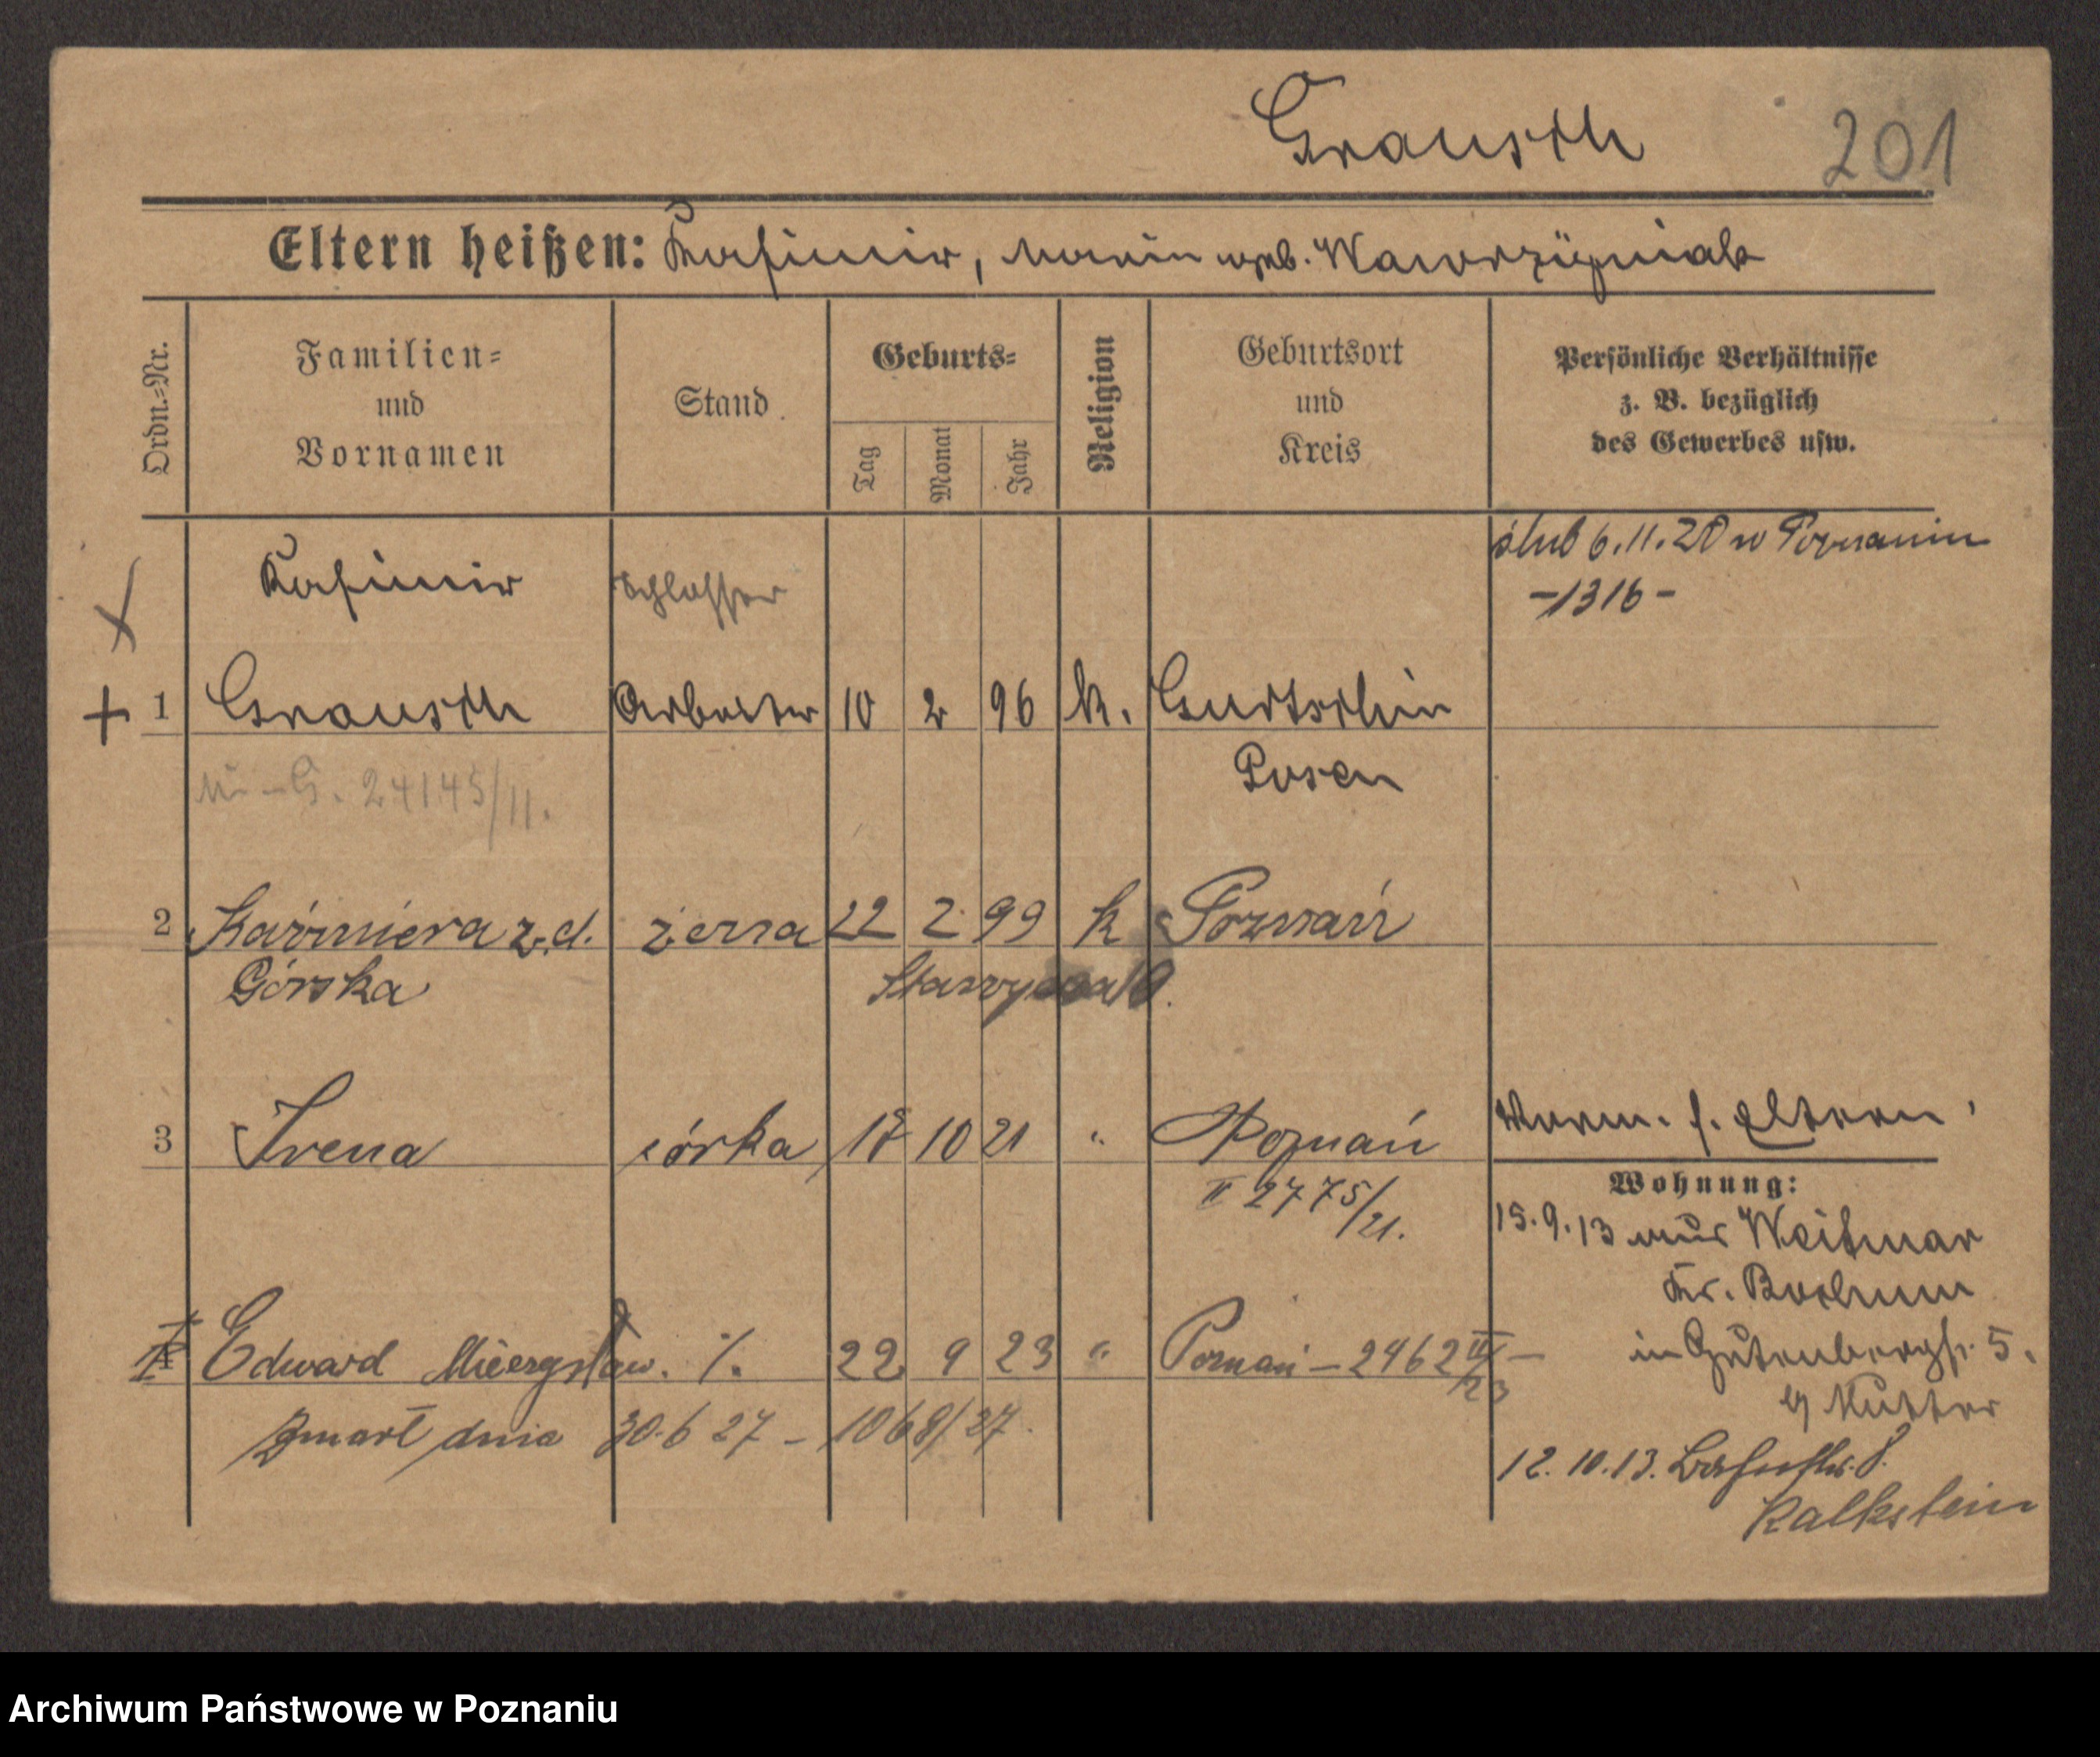 Grausch 201
Eltern heißen: Kasimir, Marie geb. Wawrzÿniak
Ordn.-Nr.
Familien-
und
Vornamen
Stand
Geburts-
Tag
Monat
Jahr
Religion
Geburtsort
und
Kreis
Persönliche Verhältnisse
z. B. bezüglich
des Gewerbes usw.
ślub 6.11.20 w Poznaniu
-1316-
Kasimir Schlosser
1 Grausch Arbeiter 10 2 96 k. Gurtschin
Posen
24145/11.
2 Kaźmiera z.d. żona 22 2 99 k Poznań
Górska
3 Irena córka 10 21 " Poznań
II 2775/21.
s. Eltern
Wohnung:
15.9.13 aus Weitmar
Kr. Bochum
in Gutenbergstr. 5.
b/ Mutter
12.10.13.
Kalkstein
4 Edward Mieczysław. ./. 22 9 23 " Poznań – 2462 II/23 –
Zmarł dnia 30.6 27 – 1068/27.
Archiwum Państwowe w Poznaniu